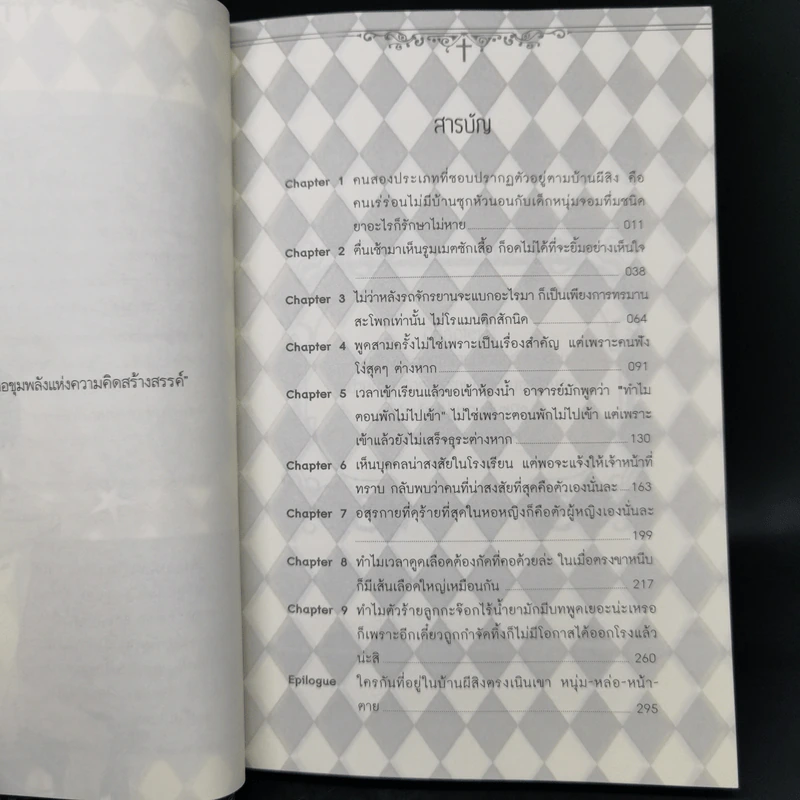 อขุมพลังแห่งความคิดสร้างสรรค์"
สารบัญ
Chapter 1 คนสองประเภทที่ชอบปรากฏตัวอยู่ตามบ้านผีสิง คือ
คนเร่ร่อนไม่มีบ้านซุกหัวนอนกับเด็กหนุ่มจอมทึ่มชนิด
ยาอะไรก็รักษาไม่หาย 011
Chapter 2 ตื่นเช้ามาเห็นรูมเมตซักเสื้อ ก็อดไม่ได้ที่จะยิ้มอย่างเห็นใจ
038
Chapter 3 ไม่ว่าหลังรถจักรยานจะแบกอะไรมา ก็เป็นเพียงการทรมาน
สะโพกเท่านั้น ไม่โรแมนติกสักนิด 064
Chapter 4 พูดสามครั้งไม่ใช่เพราะเป็นเรื่องสำคัญ แต่เพราะคนฟัง
โง่สุดๆ ต่างหาก 091
Chapter 5 เวลาเข้าเรียนแล้วขอเข้าห้องน้ำ อาจารย์มักพูดว่า "ทำไม
ตอนพักไม่ไปเข้า" ไม่ใช่เพราะตอนพักไม่ไปเข้า แต่เพราะ
เข้าแล้วยังไม่เสร็จธุระต่างหาก 130
Chapter 6 เห็นบุคคลน่าสงสัยในโรงเรียน แต่พอจะแจ้งให้เจ้าหน้าที่
ทราบ กลับพบว่าคนที่น่าสงสัยที่สุดคือตัวเองนั่นละ 163
Chapter 7 อสุรกายที่ดุร้ายที่สุดในหอหญิงก็คือตัวผู้หญิงเองนั่นละ
199
Chapter 8 ทำไมเวลาดูดเลือดต้องกัดที่คอด้วยล่ะ ในเมื่อตรงขาหนีบ
ก็มีเส้นเลือดใหญ่เหมือนกัน 217
Chapter 9 ทำไมตัวร้ายลูกกะจ๊อกไร้น้ำยามักมีบทพูดเยอะน่ะเหรอ
ก็เพราะอีกเดี๋ยวถูกกำจัดทิ้งก็ไม่มีโอกาสได้ออกโรงแล้ว
น่ะสิ 260
Epilogue ใครกันที่อยู่ในบ้านผีสิงตรงเนินเขา หนุ่ม-หล่อ-หน้า-
ตาย 295